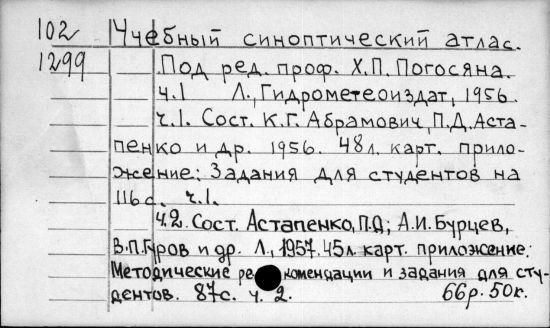 102 Учебный синоптический атлас.
1299 Под ред. проф. Х.П. Погосяна.
ч.1 Л., Гидрометеоиздат, 1956.
ч.1. Сост. К.Г. Абрамович, П.Д. Аста-
пенко и др. 1956. 48 л. карт. прило-
жение: Задания для студентов на
116 с. ч.1.
ч.2. Сост. Астапенко, П.Д; А.И. Бурцев,
В.П. Гуров и др. Л., 1957. 45 л. карт. приложение:
Методические ре комендации и задания для сту-
дентов. 87с. ч. 2. 66р. 50к.